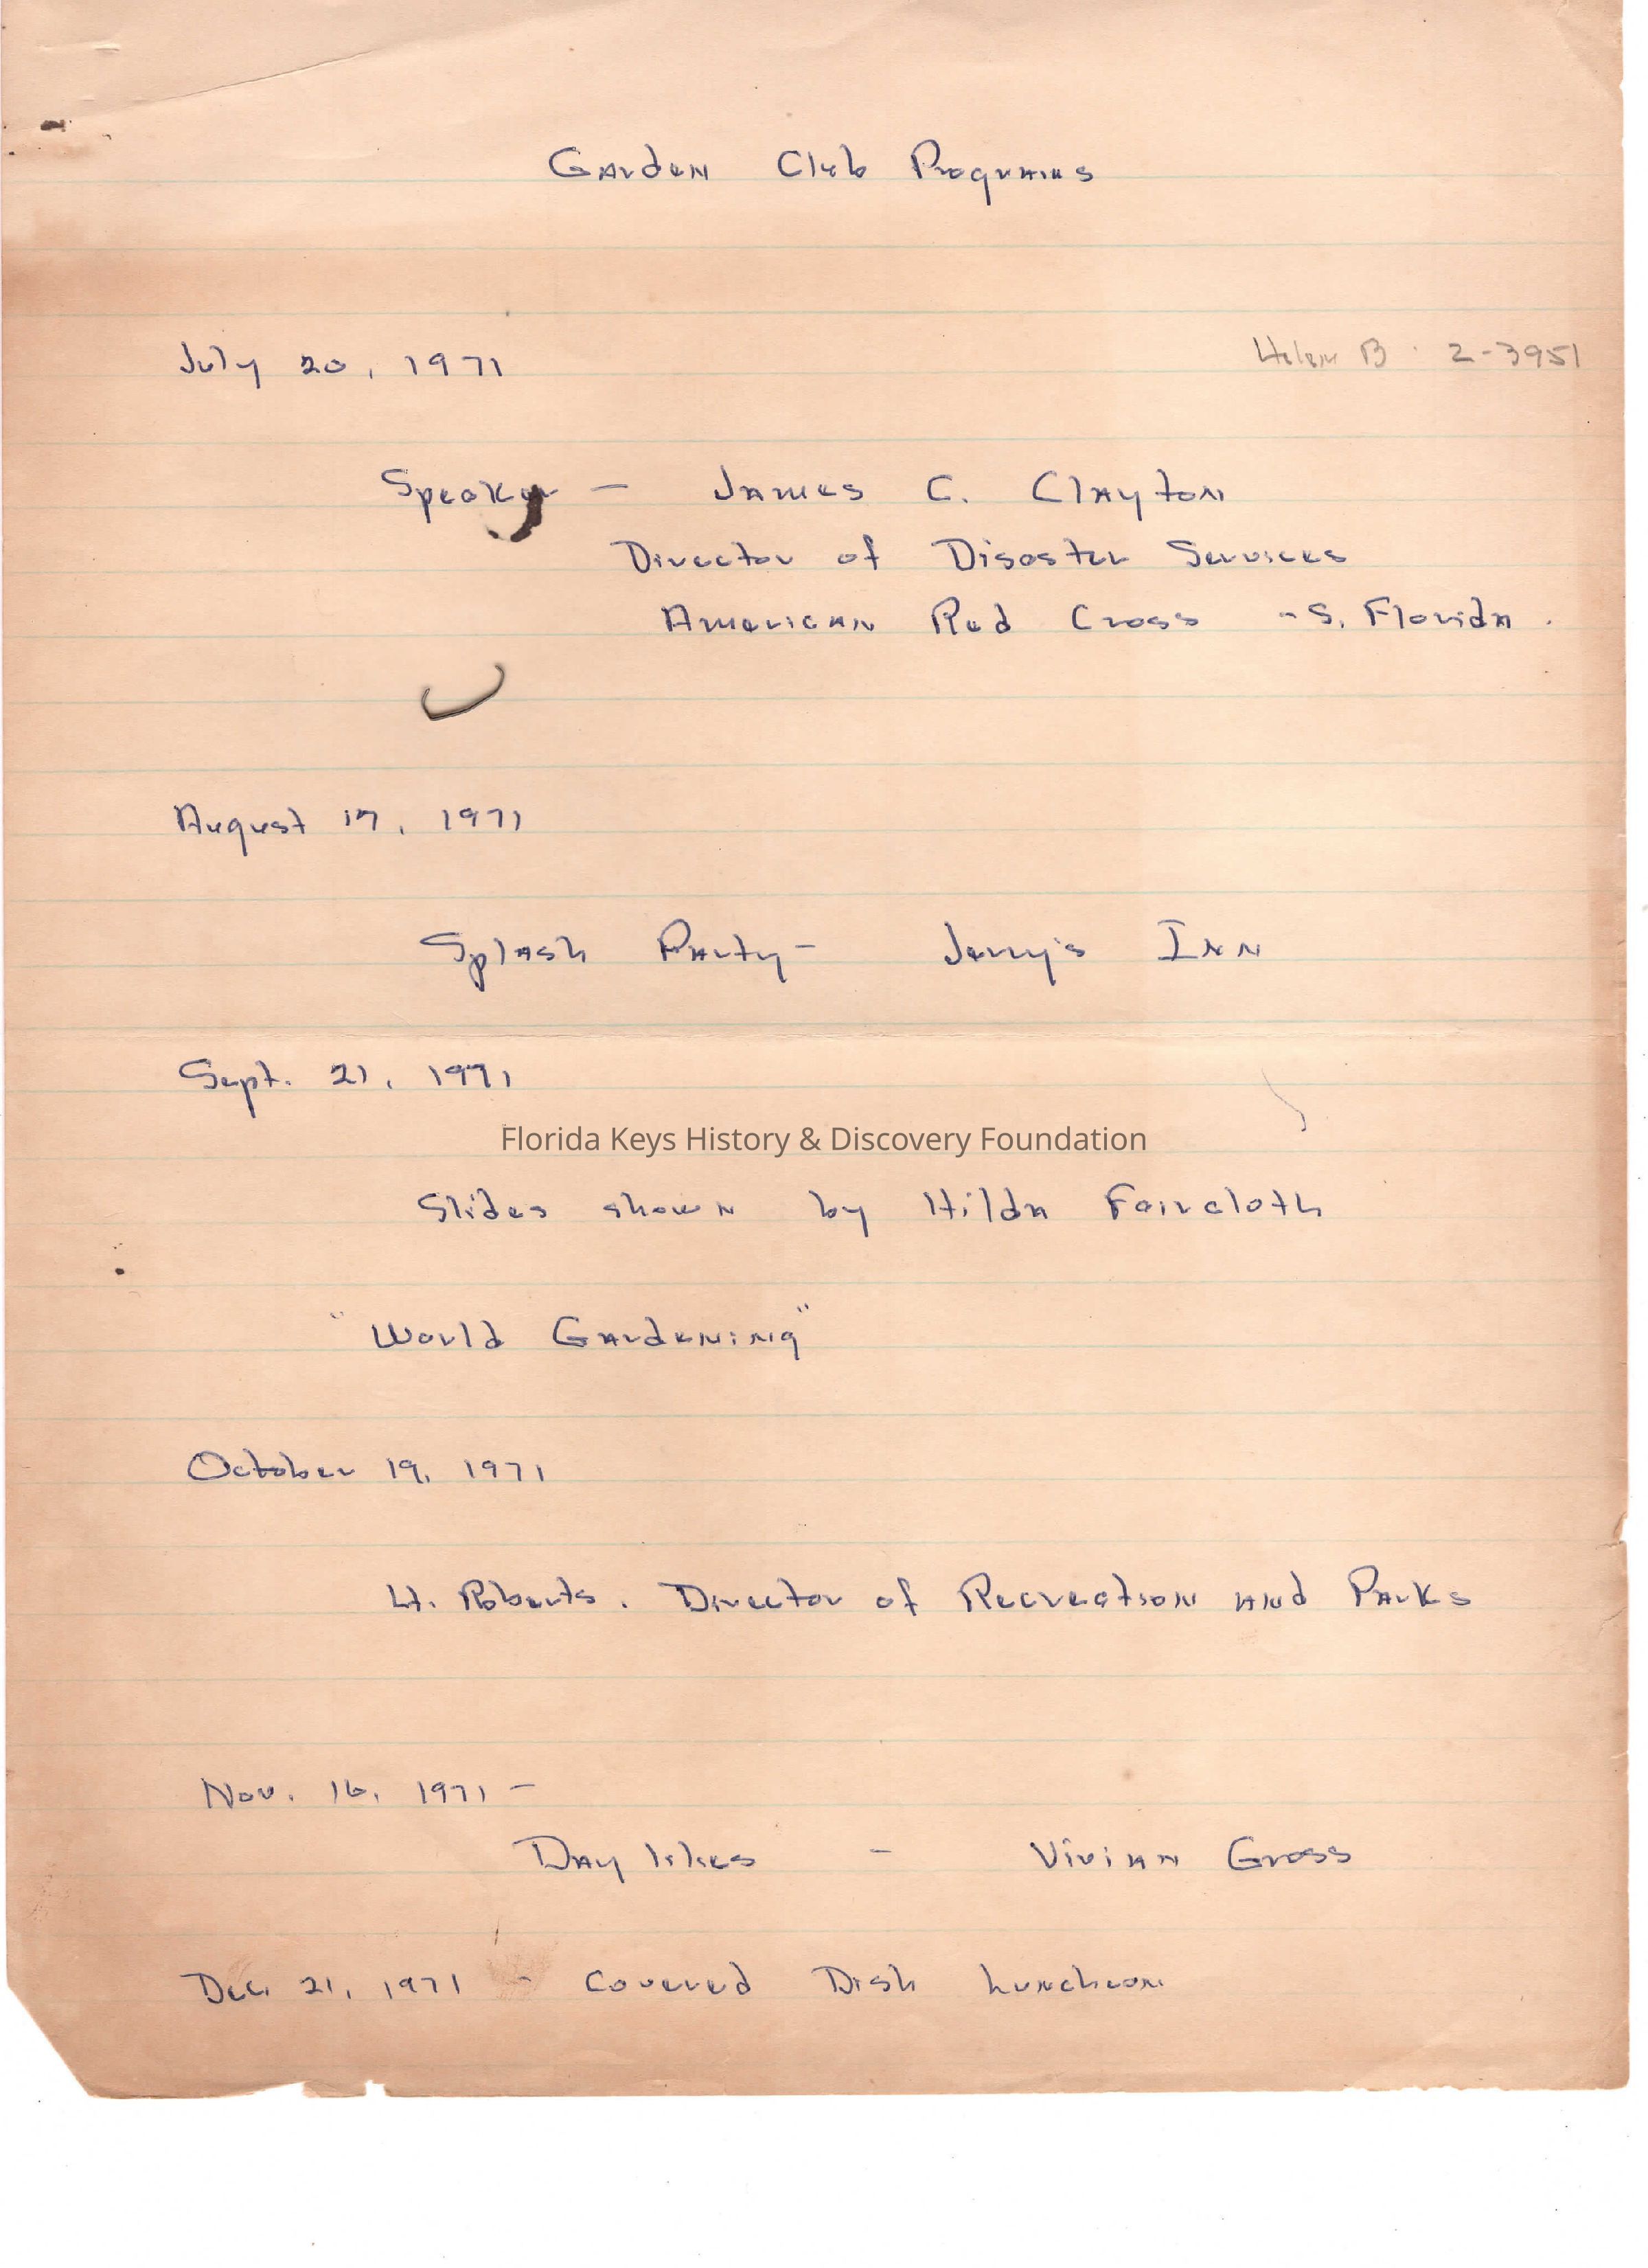 Garden Club Programs
July 20, 1971
Helen B. 2-3951
Speaker - James C. Clayton
Director of Disaster Services
American Red Cross - S. Florida.
August 17, 1971
Splash Party - Jerry's Inn
Sept. 21, 1971
Florida Keys History & Discovery Foundation
Slides shown by Hilda Faircloth
"World Gardening"
October 19, 1971
Lt. Roberts. Director of Recreation and Parks
Nov. 16, 1971 -
Day lilies - Vivian Gross
Dec. 21, 1971 - Covered Dish Luncheon